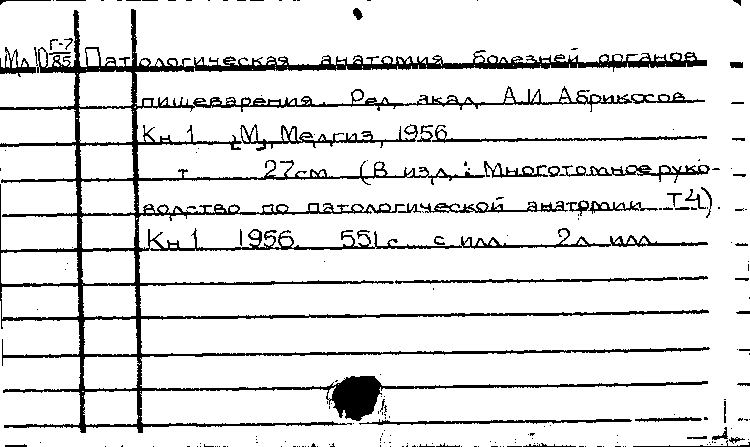 Мл10 Г-7/85 Патологическая анатомия болезней органов
пищеварения. Ред. акад. А.И. Абрикосов
Кн 1 [М], Медгиз, 1956
т 27см (В изд.: Многотомное руко-
водство по патологической анатомии Т4).
Кн 1 1956. 551 с. с илл. 2л илл.